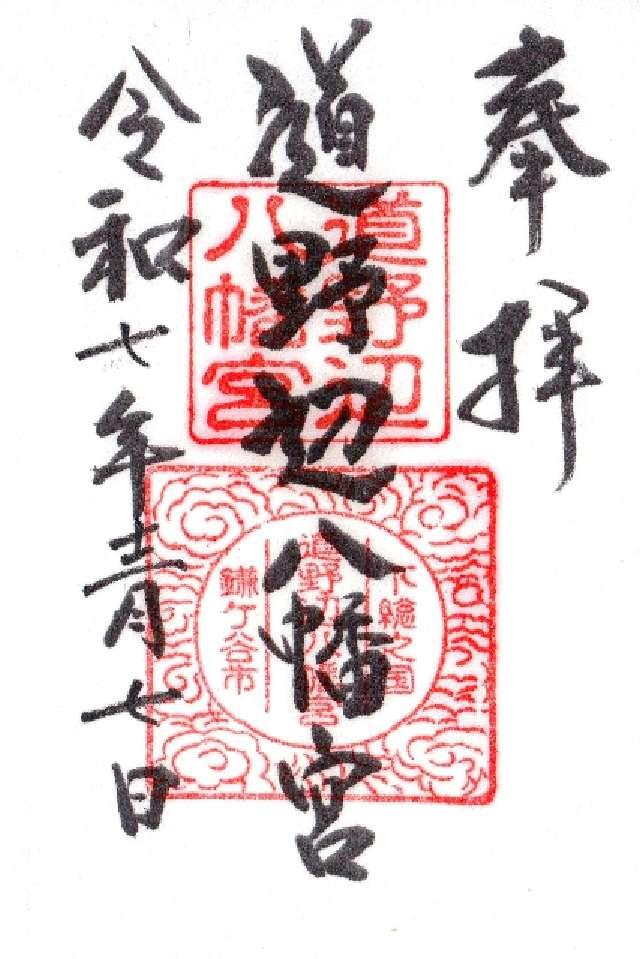 奉拝
道野辺八幡宮
令和七年十二月七日
道野辺
八幡宮
下総之国
道野辺八幡宮
鎌ケ谷市